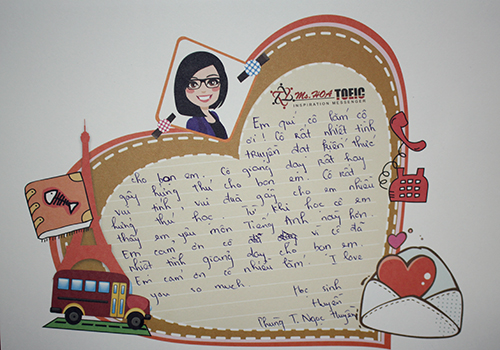 Ms. HOA TOEIC
INSPIRATION MESSENGER
Em quí cô lắm cô
ơi! Cô rất nhiệt tình
truyền đạt kiến thức
cho bọn em. Cô giảng dạy rất hay
gây hứng thú cho bọn em. Cô rất
vui tính vui đùa gây cho em nhiều
hứng thú học. Từ khi học cô em
thấy em yêu môn Tiếng Anh này hơn.
Em cảm ơn cô vì cô đã
nhiệt tình giảng dạy cho bọn em.
Em cảm ơn cô nhiều lắm! I love
you so much.
Học sinh
Huyền
Phùng T. Ngọc Huyền